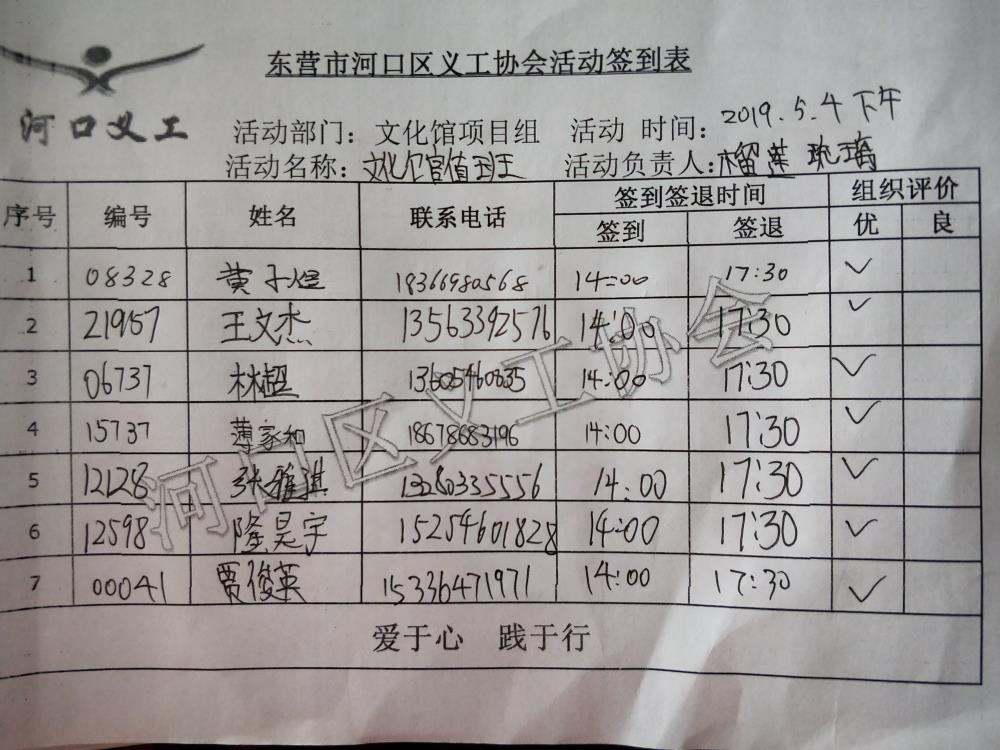 东营市河口区义工协会活动签到表
河口义工
活动部门：文化馆项目组 活动 时间：2019.5.4下午
活动名称：文化馆值班 活动负责人：榴莲 玩璃
序号 编号 姓名 联系电话 签到签退时间 组织评价
签到 签退 优 良
1 08328 黄子煜 18366980568 14:00 17:30 ✓
2 21957 王文杰 13563392576 14:00 17:30 ✓
3 06737 林超 13605460835 14:00 17:30 ✓
4 15737 薄家和 18678683196 14:00 17:30 ✓
5 12128 张雅淇 13280335556 14:00 17:30 ✓
6 12598 隆昊宇 15254601828 14:00 17:30 ✓
7 00041 贾俊英 15336471971 14:00 17:30 ✓
爱于心 践于行
河口区义工协会